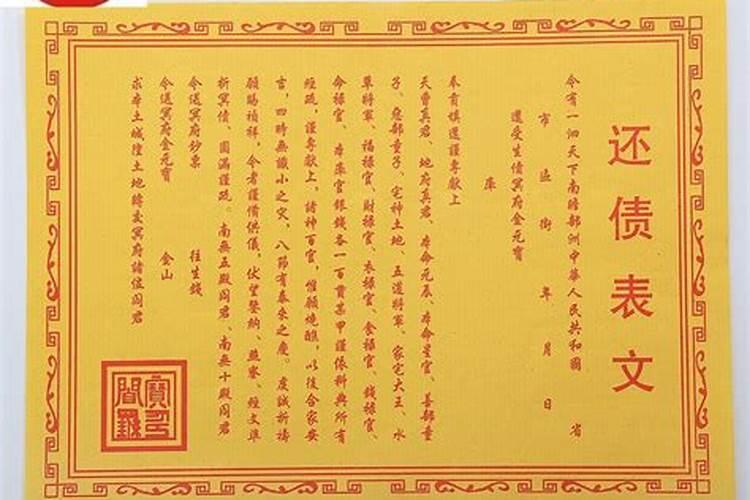 还债表文
今有一泗天下南瞻部洲中華人民共和國 省
市 區 街 年 月 日
還受生債冥府金元寶
庫
奉賁填還謹專献上
天曹真君、地府真君、本命元辰、本命星官、善部童
子、惡部童子、宅神土地、五道將軍、家宅大王、水
草將軍、福禄官、財禄官、衣禄官、食禄官、錢禄官、
命禄官、本庫官銀錢各一百貫某甲謹依科典所有
經疏，謹專献上，諸神百官，惟願燒醮，以後合家安
吉，四時無讖小之灾，八節有泰來之慶。虔誠祈禱
願賜禎祥，今者謹備供儀，伏望鑒納、照察、經文準
折冥債、圓滿謹疏。南無五殿阎君、南無十殿阎君
令送冥府鈔票 往生錢
令送冥府金元寶 金山
求本土城隍土地轉交冥府諸位阎君